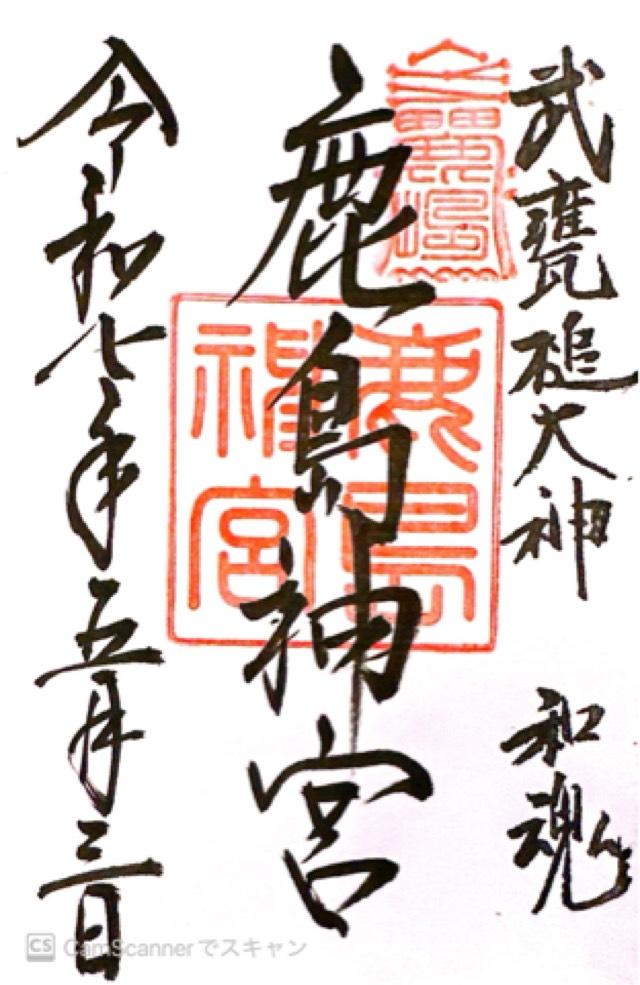 武甕槌大神 和魂
鹿島神宮
令和七年五月三日
鹿嶋
鹿島神宮
CS CamScannerでスキャン